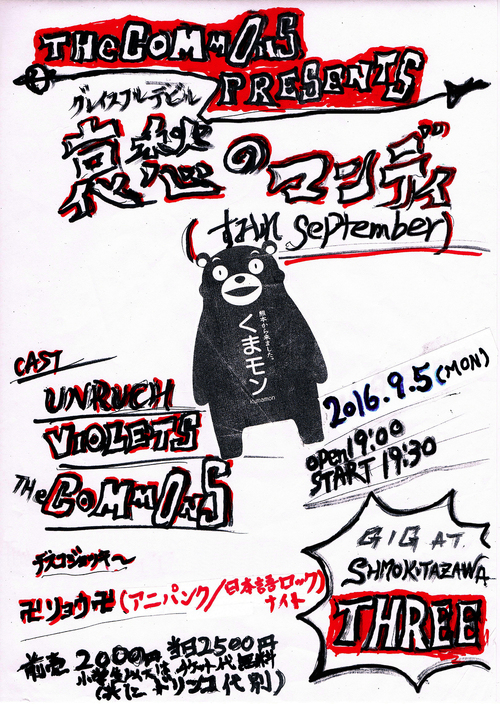 THE COMMONS
PRESENTS
グレイスフルデビル
哀愁のマンデイ
(すみれ September)
熊本から来ました。
くまモン
kumamon
CAST
UNRUCH
VIOLETS
THE COMMONS
2016.9.5(MON)
OPEN 19:00
START 19:30
GIG AT
SHMOKITAZAWA
THREE
デスコジョッキ〜
卍リョウ卍(アニパンク/日本語ロック)
ナイト
前売 2000円 当日2500円
小学生以下はチケット代無料
(共に ドリンク代別)